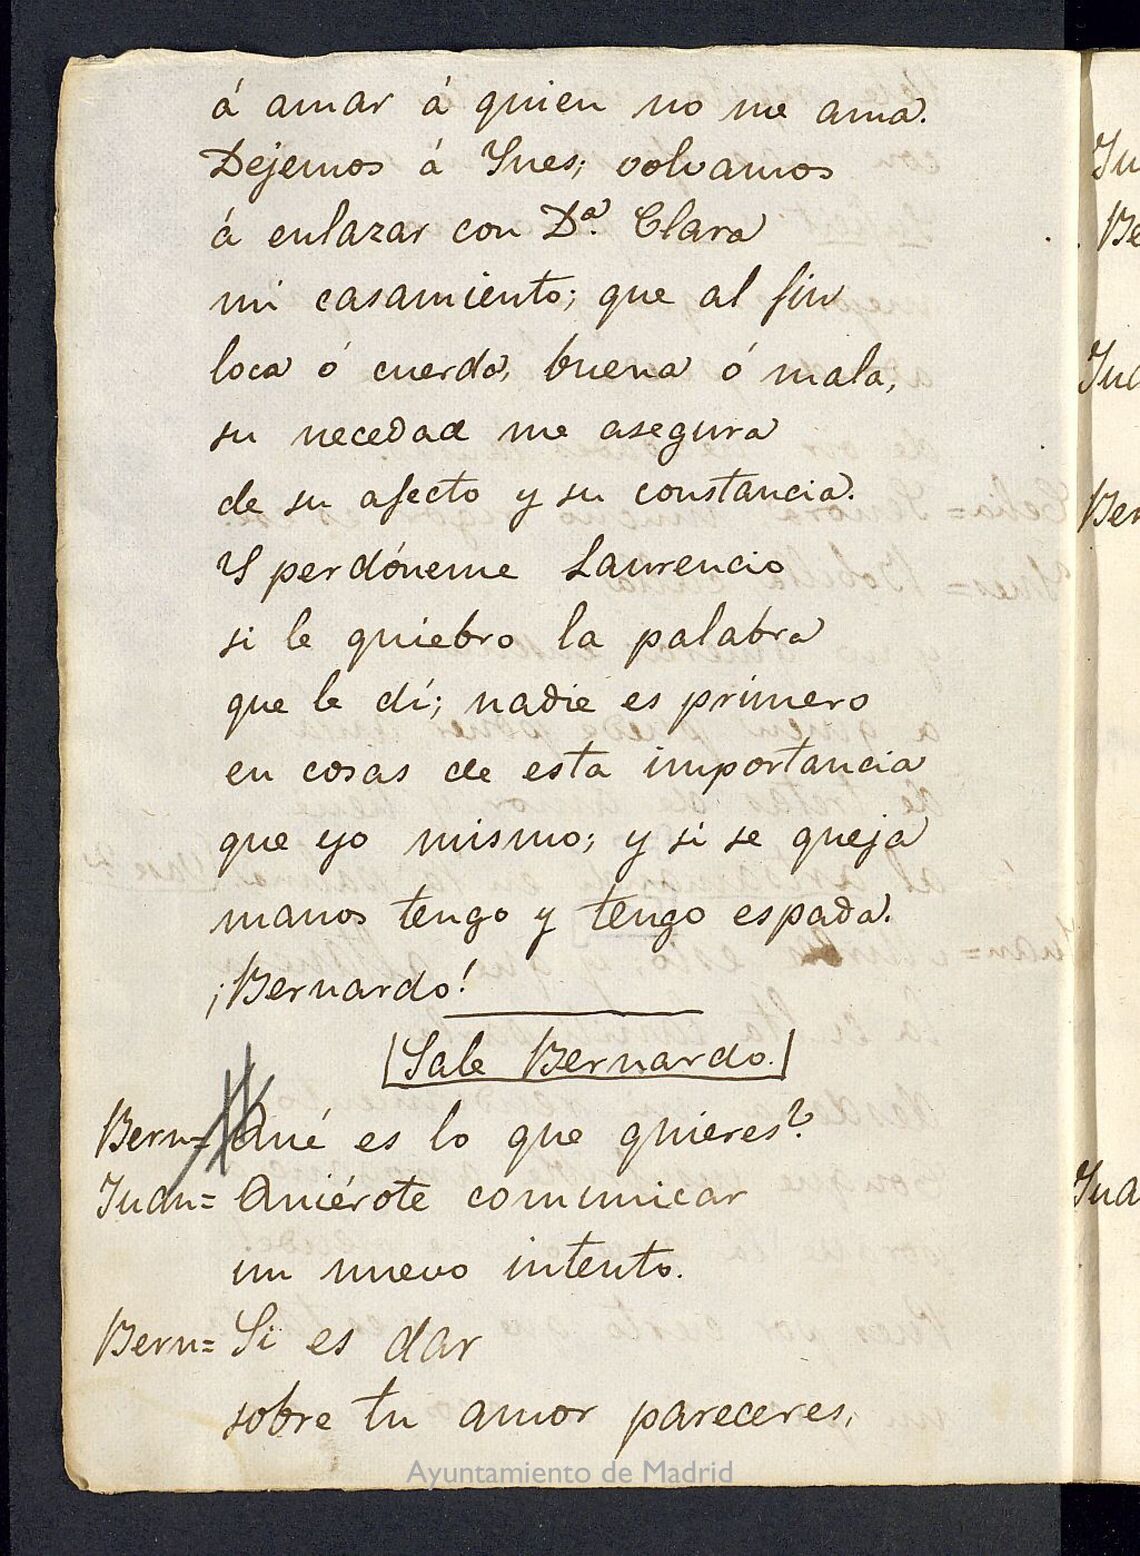 á amar á quien no me ama.
Dejemos á Ynes; volvamos
á enlazar con Dª. Clara
mi casamiento; que al fin
loca ó cuerda, buena ó mala,
su necedad me asegura
de su afecto y su constancia.
Y perdóneme Laurencio
si le quiebro la palabra
que le dí; nadie es primero
en cosas de esta importancia
que yo mismo; y si se queja
manos tengo y tengo espada.
¡Bernardo!
Sale Bernardo.
Bern= Qué es lo que quieres?
Juan= Quiérote comunicar
un nuevo intento.
Bern= Si es dar
sobre tu amor pareceres,
Ayuntamiento de Madrid